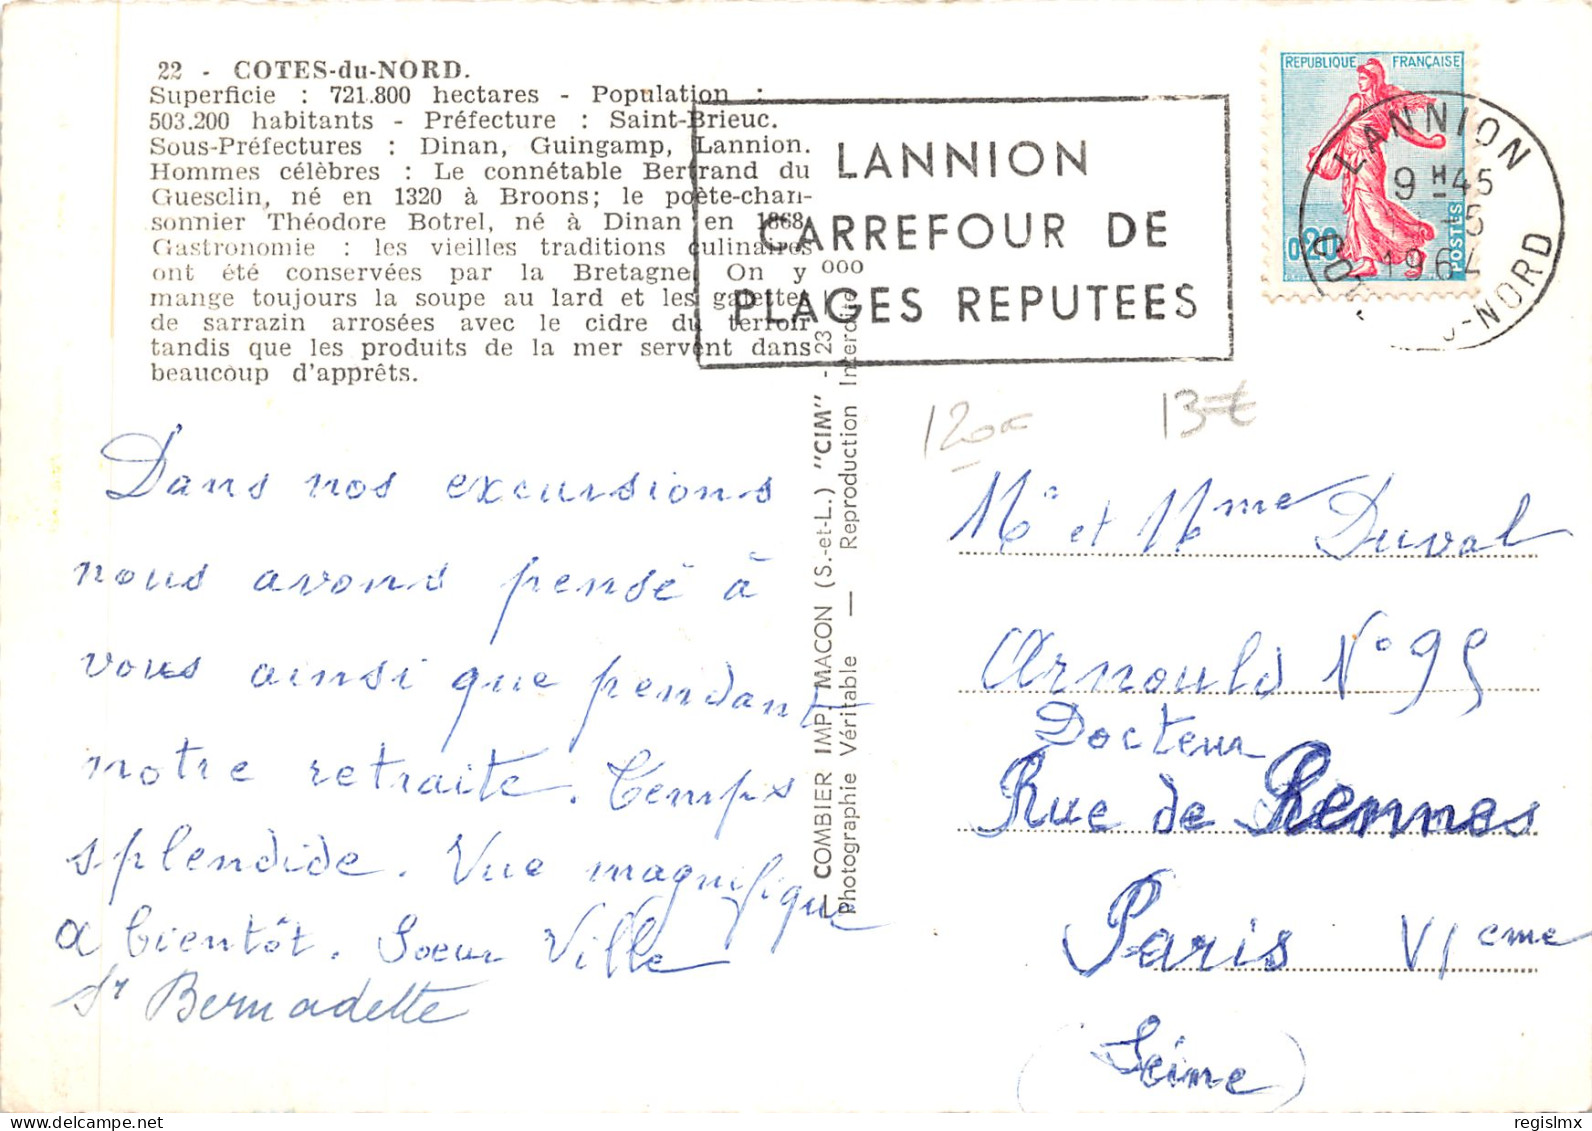 22 - COTES-du-NORD.
Superficie : 721.800 hectares - Population :
503.200 habitants - Préfecture : Saint-Brieuc.
Sous-Préfectures : Dinan, Guingamp, Lannion.
Hommes célèbres : Le connétable Bertrand du
Guesclin, né en 1320 à Broons; le poète-chan-
sonnier Théodore Botrel, né à Dinan en 1868.
Gastronomie : les vieilles traditions culinaires
ont été conservées par la Bretagne. On y
mange toujours la soupe au lard et les galettes
de sarrazin arrosées avec le cidre du terroir
tandis que les produits de la mer servent dans
beaucoup d'apprêts.
LANNION
CARREFOUR DE
PLAGES REPUTEES
REPUBLIQUE FRANÇAISE
0,20
POSTES
LANNION
9 H 45
-5
1964
-NORD
13€
Dans nos excursions
nous avons pensé à
vous ainsi que pendant
notre retraite. Temps
splendide. Vue magnifique
a bientôt. Soeur Ville
Sr Bernadette
COMBIER IMP. MACON (S.-et-L.) "CIM" - 23
Photographie Véritable — Reproduction Interdite
000
Mr et Mme Duval
Arnould N° 95
Docteur
Rue de Rennes
Paris VIeme
(Seine)
regislmx
delcampe.net